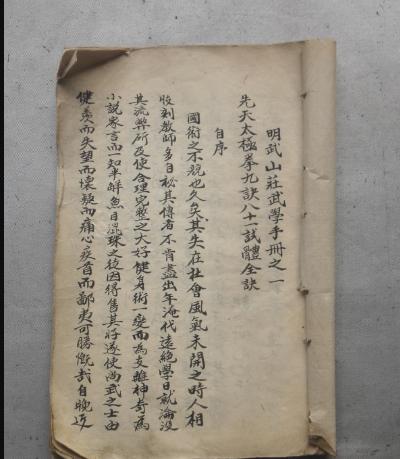 明武山莊武學手冊之一
先天太極拳九訣八十一試體全訣
自序
國術之不競也久矣其失在社會風氣未開之時人相
收刻教師多自秘其傳者不肯盡出年淹代遠絕學日就淪沒
其流弊所及使合理完整之大好健身術一變而為支離神奇為
小說家言而一知半解魚目混珠之徒因得售其奸遂使尚武之士由
健羨而失望而懷疑而痛心疾首而鄙夷可勝慨哉自晚近